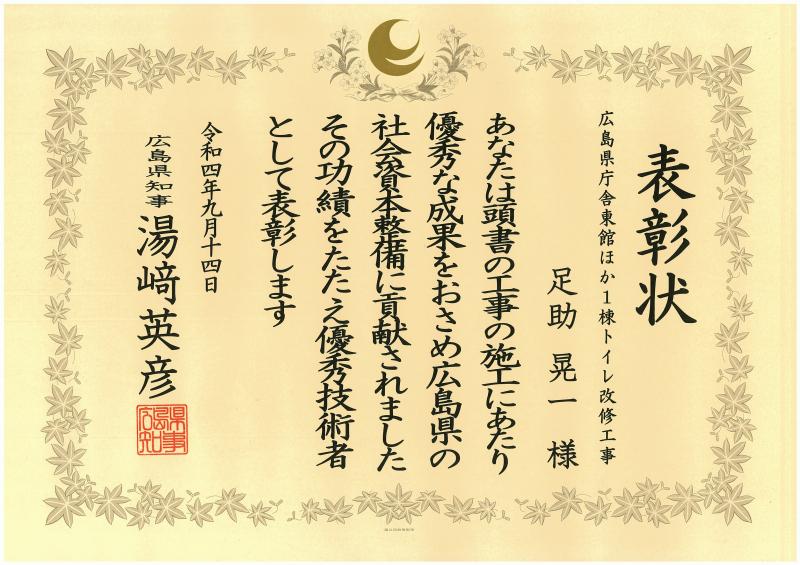 表彰状
広島県庁舎東館ほか1棟トイレ改修工事
足助 晃一 様
あなたは頭書の工事の施工にあたり
優秀な成果をおさめ広島県の
社会資本整備に貢献されました
その功績をたたえ優秀技術者
として表彰します
令和四年九月十四日
広島県知事 湯﨑英彦